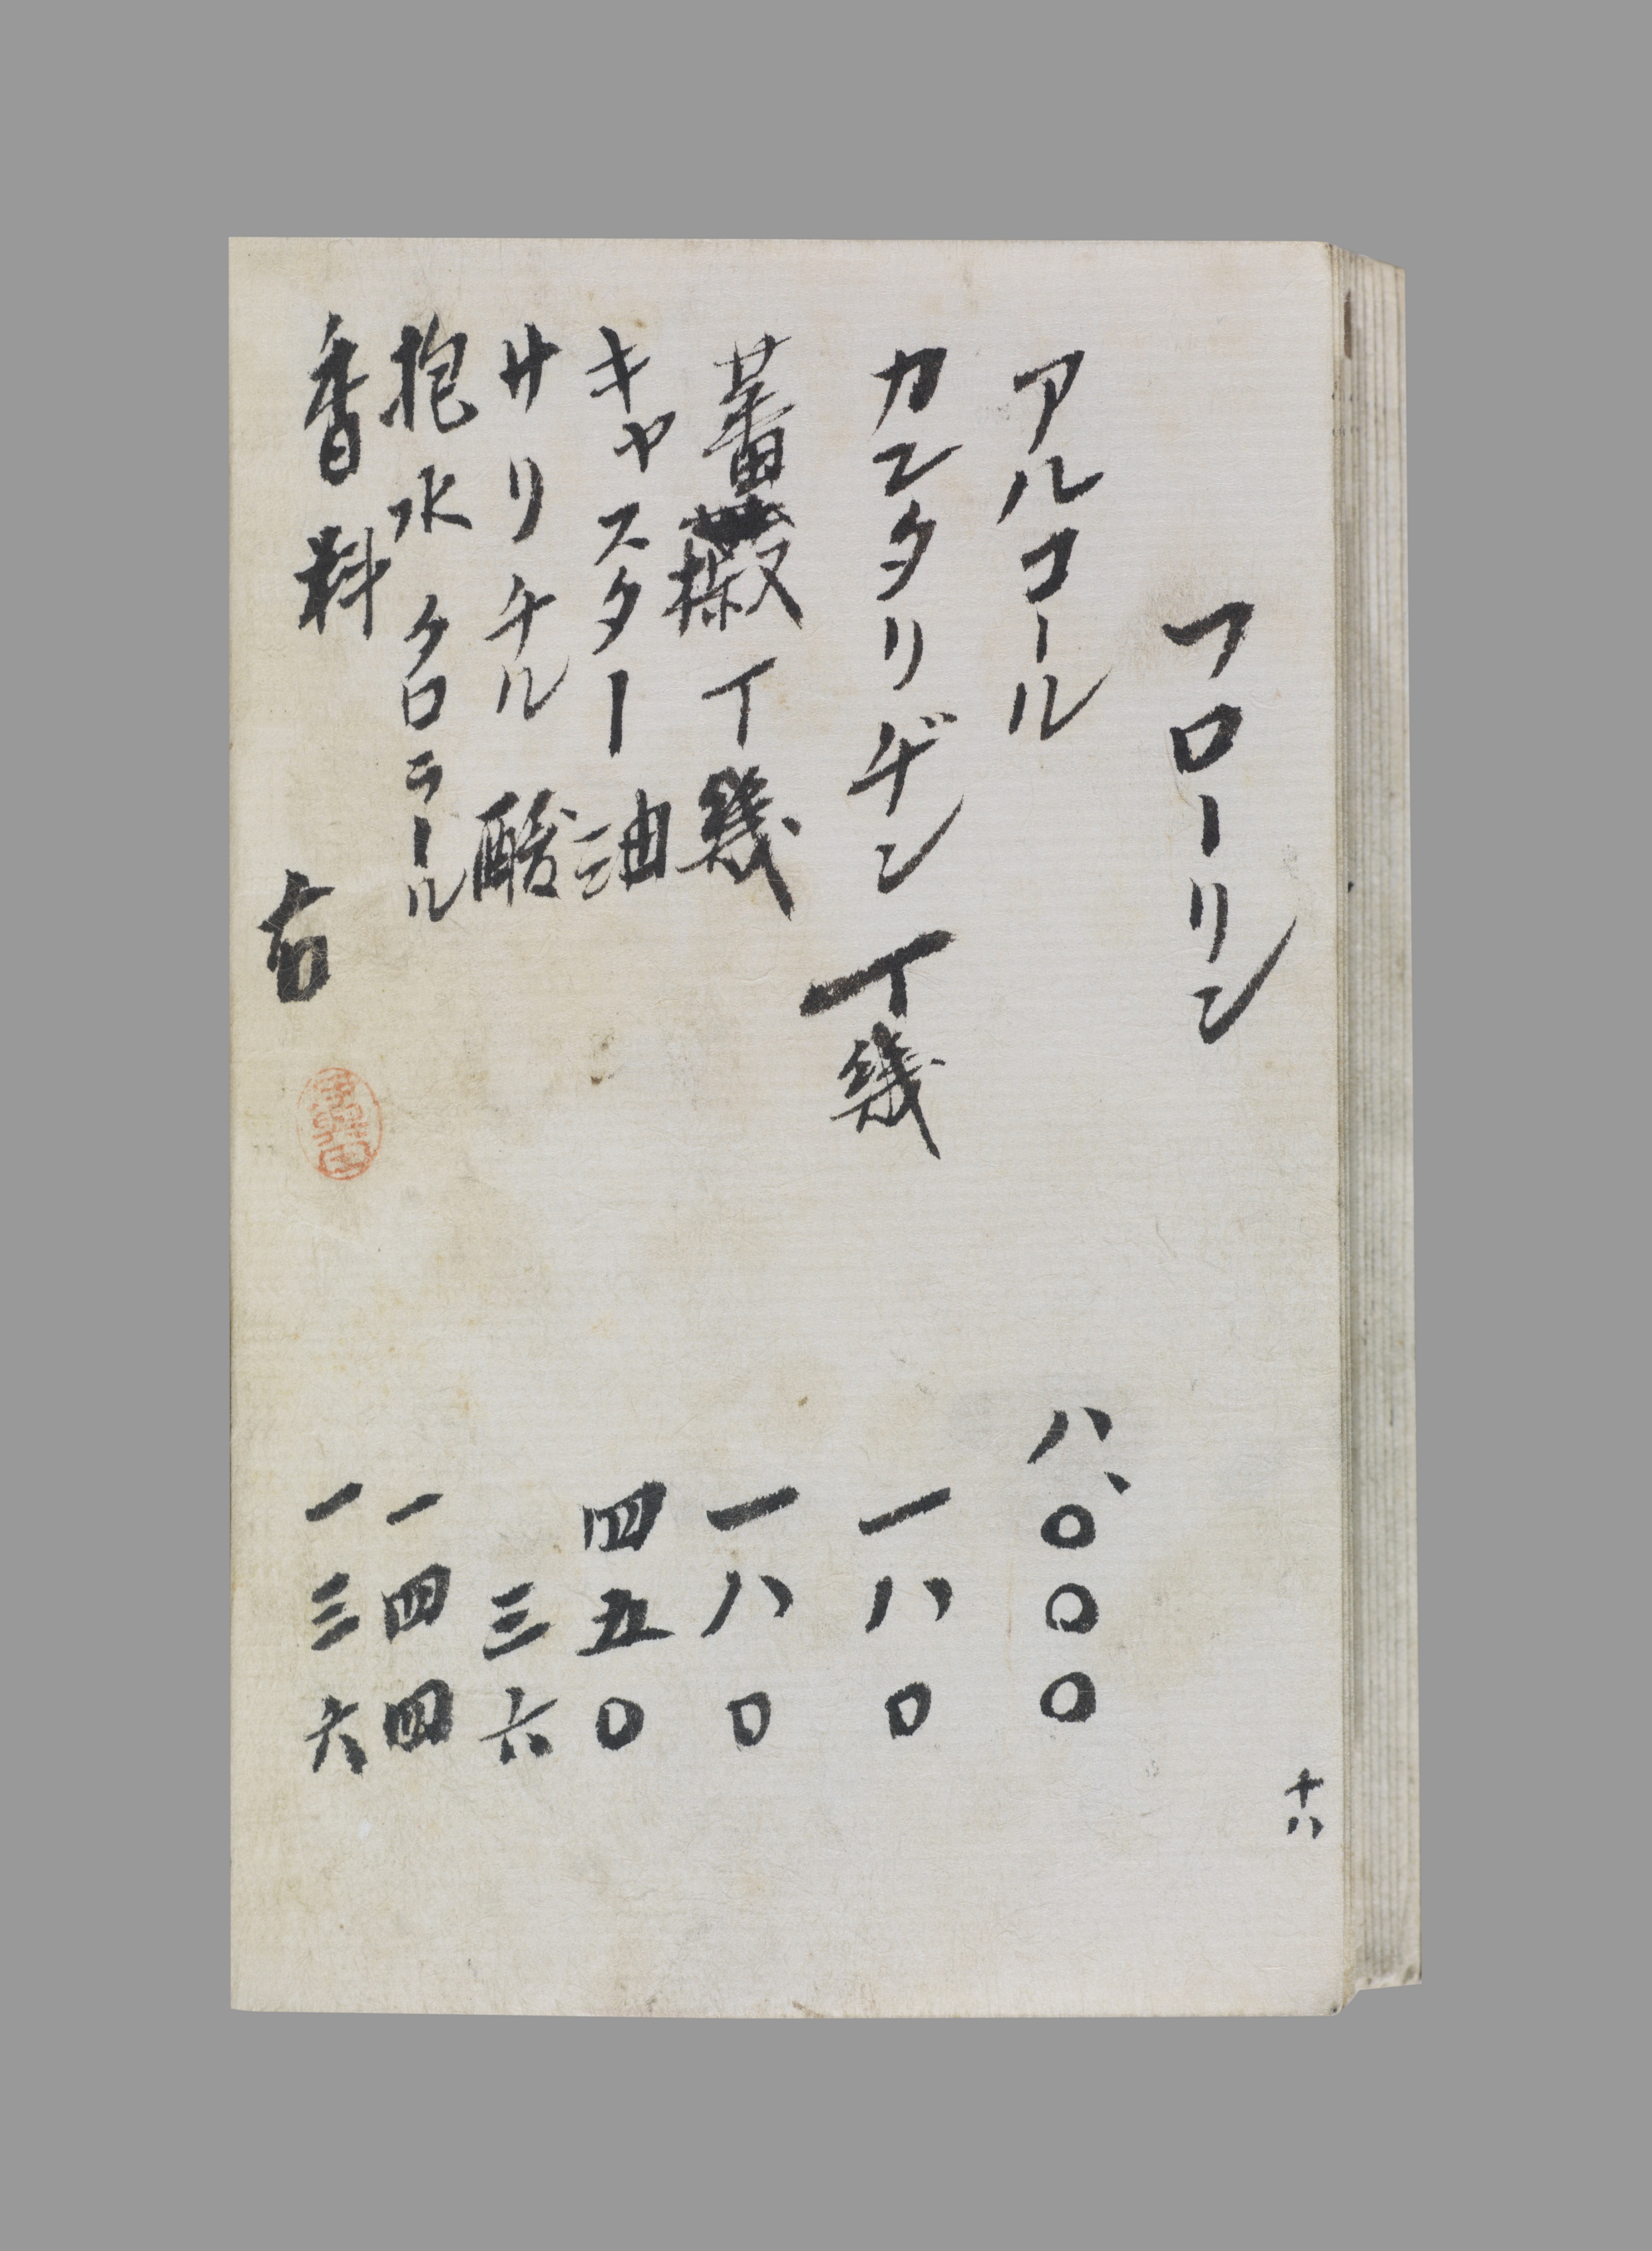 フローリン
アルコール 八、〇〇〇
カンタリヂン丁幾 一八〇
蕃椒丁幾 一八〇
キャスター油 四五〇
サリチル酸 三六
抱水クロラール 一四四
香料 一三六
右
十八